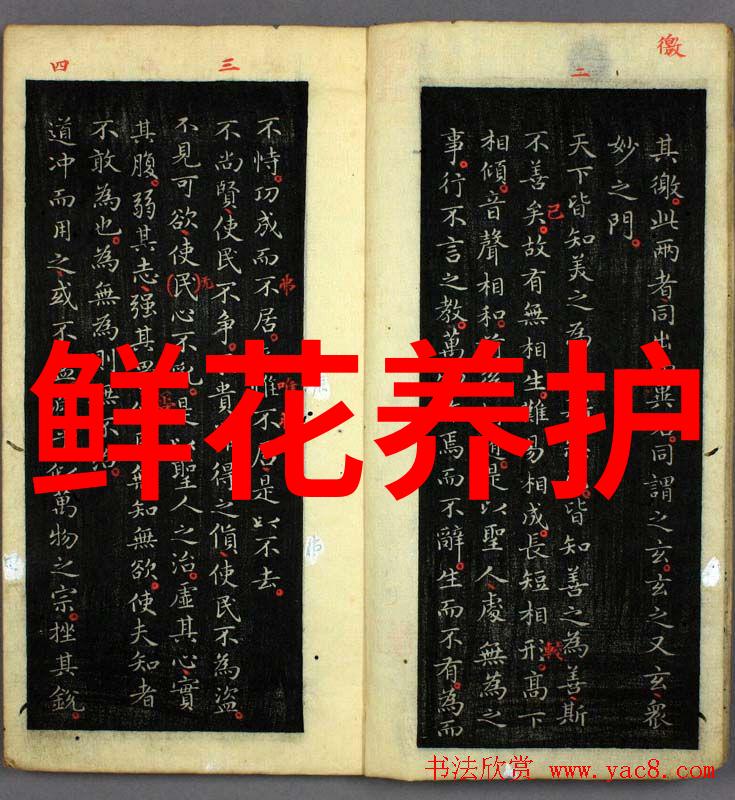 徼
二
其徼此两者同出異同謂之玄玄之又玄衆
妙之門
天下皆知美之為皆知善之為善斯
不善矣故有無相生難易相成長短相形髙下
已
輆
相傾音聲相和是以聖人處無為之
事行不言之教萬焉而不辭生而不有為而
三
四
不恃功成而不居惟不居是以不去
弗
唯
不尚賢使民不争貴得之貨使民不為盜
不見可欲使民心不亂是以聖人之治虛其心實
无
其腹弱其志强其無知無欲使夫知者
不敢為也為無為則無不治
道冲而用之或不盈萬物之宗挫其銳
鲜花养护
书法欣赏 www.yac8.com